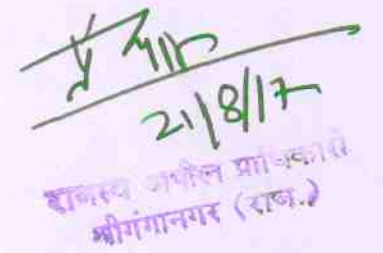 21/8/17
राजस्व अपील प्राधिकारी
श्रीगंगानगर (राज.)